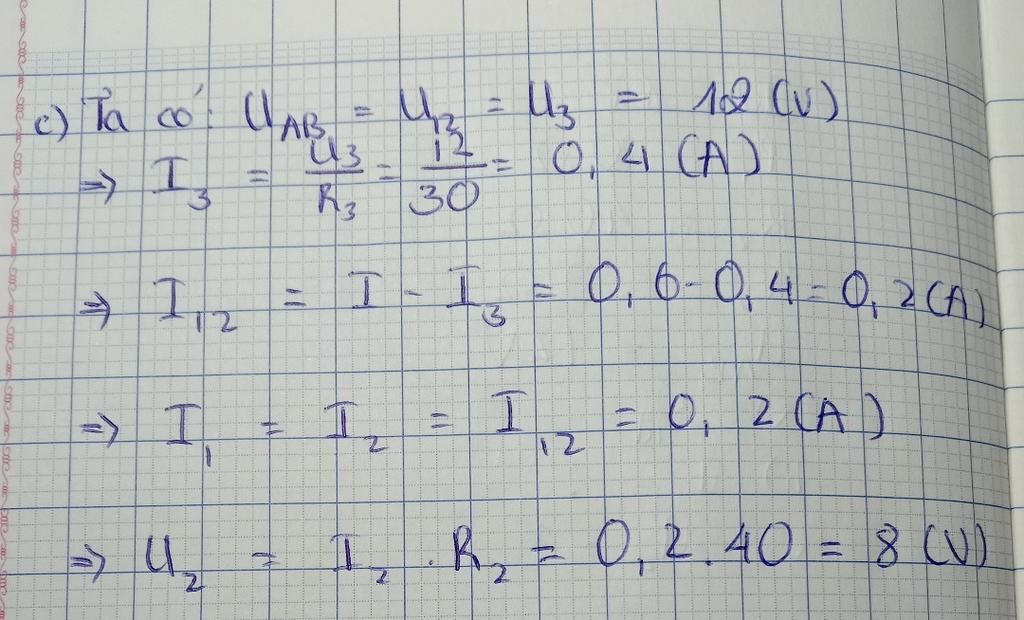 c) Ta có: U_AB = U_12 = U_3 = 12 (V)
=> I_3 = U_3/R_3 = 12/30 = 0,4 (A)
=> I_12 = I - I_3 = 0,6 - 0,4 = 0,2 (A)
=> I_1 = I_2 = I_12 = 0,2 (A)
=> U_2 = I_2 . R_2 = 0,2.40 = 8 (V)